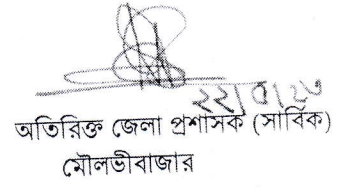 অতিরিক্ত জেলা প্রশাসক (সার্বিক)
মৌলভীবাজার